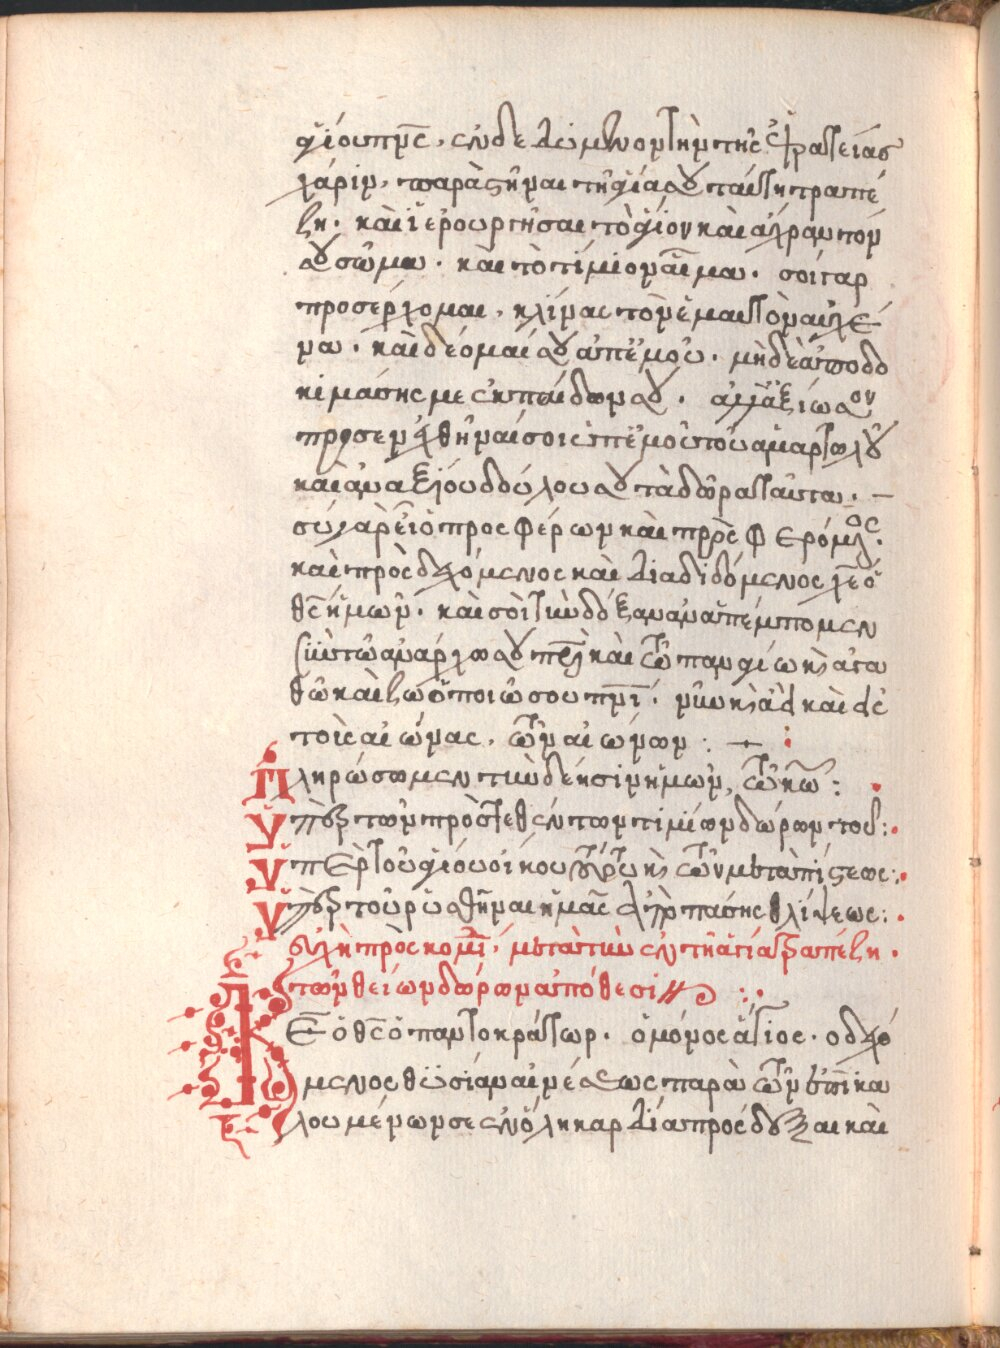 ἁγίου πνς, ἐνδεδυμένον τὴν τῆς ἱερατείας
χάριν, παραστῆναι τῇ ἁγία σου ταύτη τραπέ
ζη. καὶ ἱερουργῆσαι τὸ ἅγιον καὶ ἄχραντόν
σου σῶμα. καὶ τὸ τίμιον αἷμα. σοὶ γὰρ
προσέρχομαι, κλίνας τὸν ἐμαυτοῦ αὐχέ
να. καὶ δέομαί σου ἀπ' ἐμοῦ. μὴ δὲ ἀποδο
κιμάσης με ἐκ παίδων σου. ἀλλ' ἀξίωσον
προσενεχθῆναί σοι ὑπ' ἐμοῦ τοῦ ἁμαρτωλοῦ
καὶ ἀναξίου δούλου σου τὰ δῶρα ταῦτα. –
σὺ γὰρ εἶ ὁ προσφέρων καὶ προσφερόμενος.
καὶ προσδεχόμενος καὶ διαδιδόμενος χε ὁ
θς ἡμῶν. καὶ σοὶ τὴν δόξαν ἀναπέμπομεν
σὺν τῶ ἀνάρχω σου πρι καὶ τῶ παναγίω κ ἀγα
θῶ καὶ ζωοποιῶ σου πνι. νῦν κ ἀεὶ καὶ εἰς
τοὺς αἰῶνας, τῶν αἰώνων: +
Πληρώσωμεν τὴν δέησιν ἡμῶν, τῶ κω:
Ὑπὲρ τῶν προτεθέντων τιμίων δώρων του:
Ὑπὲρ τοῦ ἁγίου οἴκου τούτου κ τῶν μετὰ πίστεως:
Ὑπὲρ τοῦ ῥυσθῆναι ἡμᾶς ἀπὸ πάσης θλίψεως:
εὐχὴ προσκομι, μετὰ τὴν ἐν τῆ ἁγία τραπέζη.
τῶν θείων δώρων ἀπόθεσιν
Κε ὁ θς ὁ παντοκράτωρ. ὁ μόνος ἅγιος. ὁ δεχό
μενος θυσίαν αἰνέσεως παρὰ τῶν ἐπικα
λουμένων σε ἐν ὅλη καρδία πρόσδεξαι καὶ